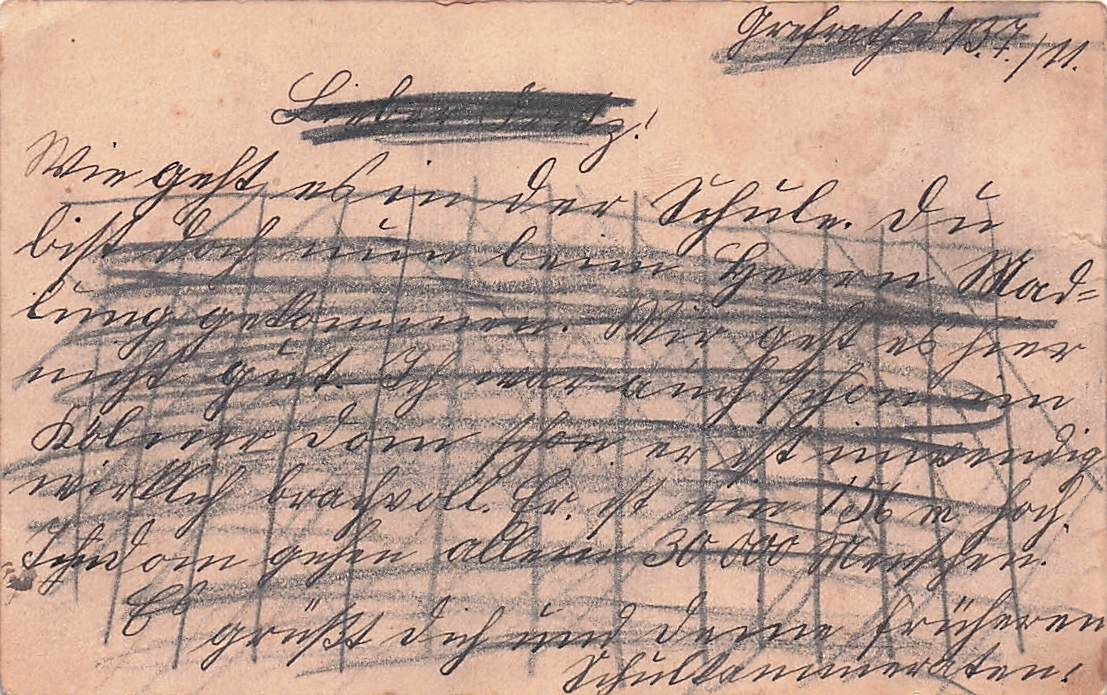 Grefrath d 13.7./11.
Lieber Fritz!
Wie geht es in der Schule. Du
bist doch nun beim Herrn Mad=
lung gekommen. Mir geht es hier
nicht gut. Ich war auch schon im
Kölner Dom schon er ist inwendig
wirklich brachvoll. Er ist ein 156 m hoch.
dom gehen allein 30 000 Menschen.
Es
grüßt dich und deine früheren
Schulkammeraten.